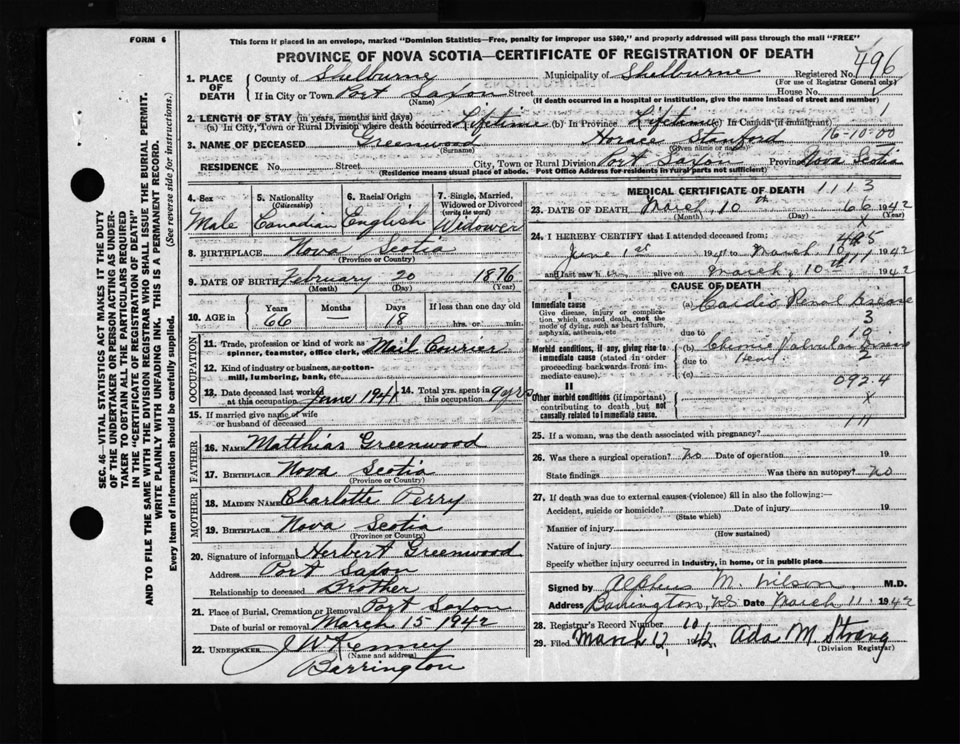 FORM 6
This form if placed in an envelope, marked "Dominion Statistics—Free, penalty for improper use $300," and properly addressed will pass through the mail "FREE"
PROVINCE OF NOVA SCOTIA—CERTIFICATE OF REGISTRATION OF DEATH
SEC. 46—VITAL STATISTICS ACT MAKES IT THE DUTY
OF THE UNDERTAKER OR PERSON ACTING AS UNDER-
TAKER TO OBTAIN ALL THE PARTICULARS REQUIRED
IN THE "CERTIFICATE OF REGISTRATION OF DEATH"
AND TO FILE THE SAME WITH THE DIVISION REGISTRAR WHO SHALL ISSUE THE BURIAL PERMIT.
WRITE PLAINLY WITH UNFADING INK. THIS IS A PERMANENT RECORD.
Every item of information should be carefully supplied. (See reverse side for instructions.)
1. PLACE OF DEATH County of Shelburne Municipality of Shelburne Registered No. 496
(For use of Registrar General only)
If in City or Town Port Saxon Street House No.
(Name) (If death occurred in a hospital or institution, give the name instead of street and number)
2. LENGTH OF STAY (in years, months and days)
(a) In City, Town or Rural Division where death occurred Lifetime (b) In Province Lifetime (c) In Canada (if immigrant) 1
3. NAME OF DECEASED Greenwood Horace Stanford 76-10-00
(Surname) (Given name or names)
RESIDENCE No. Street City, Town or Rural Division Port Saxon Province Nova Scotia
(Residence means usual place of abode. Post Office Address for residents in rural parts not sufficient)
4. Sex Male
5. Nationality (Citizenship) Canadian
6. Racial Origin English
7. Single, Married, Widowed or Divorced (write the word) Widower
8. BIRTHPLACE Nova Scotia
(Province or Country)
9. DATE OF BIRTH February 20 1876
(Month) (Day) (Year)
10. AGE in Years 66 Months — Days 18 If less than one day hrs. or min.
OCCUPATION
11. Trade, profession or kind of work as spinner, teamster, office clerk, etc. Mail Courier
12. Kind of industry or business, as cotton-mill, lumbering, bank, etc.
13. Date deceased last worked at this occupation June 1941
14. Total yrs. spent in this occupation 9 yrs
15. If married give name of wife or husband of deceased
FATHER
16. NAME Matthias Greenwood
17. BIRTHPLACE Nova Scotia
(Province or Country)
MOTHER
18. MAIDEN NAME Charlotte Perry
19. BIRTHPLACE Nova Scotia
(Province or Country)
20. Signature of informant Herbert Greenwood
Address Port Saxon
Relationship to deceased Brother
21. Place of Burial, Cremation or Removal Port Saxon
Date of burial or removal March 15 1942
22. UNDERTAKER J W Kenney
(Name and address)
Barrington
MEDICAL CERTIFICATE OF DEATH 1113
23. DATE OF DEATH March, 10th 66 1942
(Month) (Day) (Year)
24. I HEREBY CERTIFY that I attended deceased from:
June 1st 1941 to March 10th 1942
and last saw h alive on March, 10th 1942
CAUSE OF DEATH
I
Immediate cause (a) Cardio Renal Disease
Give disease, injury or complication which caused death, not the mode of dying, such as heart failure, asphyxia, asthenia, etc
3
due to 19
Morbid conditions, if any, giving rise to immediate cause (stated in order proceeding backwards from immediate cause).
(b) Chronic Valvular Disease
due to Heart 2
(c) 092.4
II
Other morbid conditions (if important) contributing to death but not causally related to immediate cause.
x
111
25. If a woman, was the death associated with pregnancy?
26. Was there a surgical operation? No Date of operation 19
State findings Was there an autopsy? No
27. If death was due to external causes (violence) fill in also the following:—
Accident, suicide or homicide? Date of injury 19
(State which)
Manner of injury
(How sustained)
Nature of injury
Specify whether injury occurred in industry, in home, or in public place
Signed by Alphus M. Wilson M.D.
Address Barrington, N.S. Date March 11. 1942
28. Registrar's Record Number 101
29. Filed March 12 1942 Ada M. Strang
(Division Registrar)